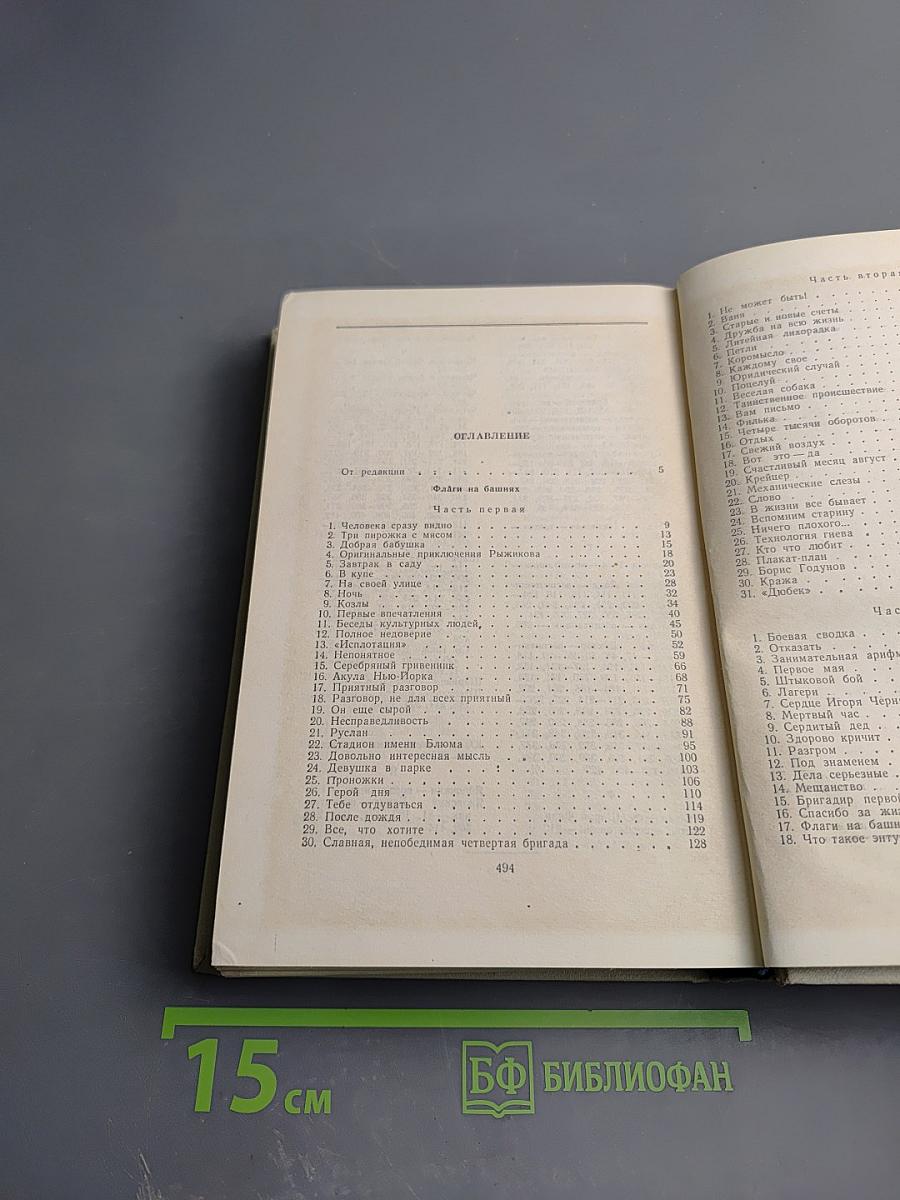 ОГЛАВЛЕНИЕ
От редакции . . . . . . . . . . . . . . . . 5
Флаги на башнях
Часть первая
1. Человека сразу видно . . . . . . . . . . . . 9
2. Три пирожка с мясом . . . . . . . . . . . . 13
3. Добрая бабушка . . . . . . . . . . . . 15
4. Оригинальные приключения Рыжикова . . . . . . . . 18
5. Завтрак в саду . . . . . . . . . . . . 20
6. В купе . . . . . . . . . . . . 23
7. На своей улице . . . . . . . . . . . . 28
8. Ночь . . . . . . . . . . . . 32
9. Козлы . . . . . . . . . . . . 34
10. Первые впечатления . . . . . . . . . . . . 40
11. Беседы культурных людей . . . . . . . . . . 45
12. Полное недоверие . . . . . . . . . . . . 50
13. «Исплотация» . . . . . . . . . . . . 52
14. Непонятное . . . . . . . . . . . . 59
15. Серебряный гривенник . . . . . . . . . . . . 66
16. Акула Нью-Йорка . . . . . . . . . . . . 68
17. Приятный разговор . . . . . . . . . . . . 71
18. Разговор, не для всех приятный . . . . . . . . 75
19. Он еще сырой . . . . . . . . . . . . 82
20. Несправедливость . . . . . . . . . . . . 88
21. Руслан . . . . . . . . . . . . 91
22. Стадион имени Блюма . . . . . . . . . . . . 95
23. Довольно интересная мысль . . . . . . . . . . 100
24. Девушка в парке . . . . . . . . . . . . 103
25. Проножки . . . . . . . . . . . . 106
26. Герой дня . . . . . . . . . . . . 110
27. Тебе отдуваться . . . . . . . . . . . . 114
28. После дождя . . . . . . . . . . . . 119
29. Все, что хотите . . . . . . . . . . . . 122
30. Славная, непобедимая четвертая бригада . . . . . . . 128
494
Часть вторая
1. Не может быть! . . . .
2. Ваня . . . . . .
3. Старые и новые счеты
4. Дружба на всю жизнь .
5. Литейная лихорадка
6. Петли . . . . .
7. Коромысло . . . . .
8. Каждому свое . . . .
9. Юридический случай . .
10. Поцелуй . . . . .
11. Веселая собака . . . .
12. Таинственное происшествие .
13. Вам письмо . . . .
14. Филька . . . . .
15. Четыре тысячи оборотов . .
16. Отдых . . . . .
17. Свежий воздух . . . .
18. Вот это — да . . . .
19. Счастливый месяц август .
20. Крейцер . . . . .
21. Механические слезы . .
22. Слово . . . . .
23. В жизни все бывает . .
24. Вспомним старину . . .
25. Ничего плохого... . . .
26. Технология гнева . . .
27. Кто что любит . . . .
28. Плакат-план . . . . .
29. Борис Годунов . . . .
30. Кража . . . . .
31. «Дюбек» . . . . .
Час
1. Боевая сводка . . . .
2. Отказать . . . . .
3. Занимательная арифм
4. Первое мая . . . .
5. Штыковой бой . . .
6. Лагери . . . . .
7. Сердце Игоря Черня
8. Мертвый час . . .
9. Сердитый дед . . .
10. Здорово кричит . .
11. Разгром . . . . .
12. Под знаменем . . .
13. Дела серьезные . .
14. Мещанство . . . .
15. Бригадир первой
16. Спасибо за жиз
17. Флаги на башн
18. Что такое энту
15 см
БФ БИБЛИОФАН